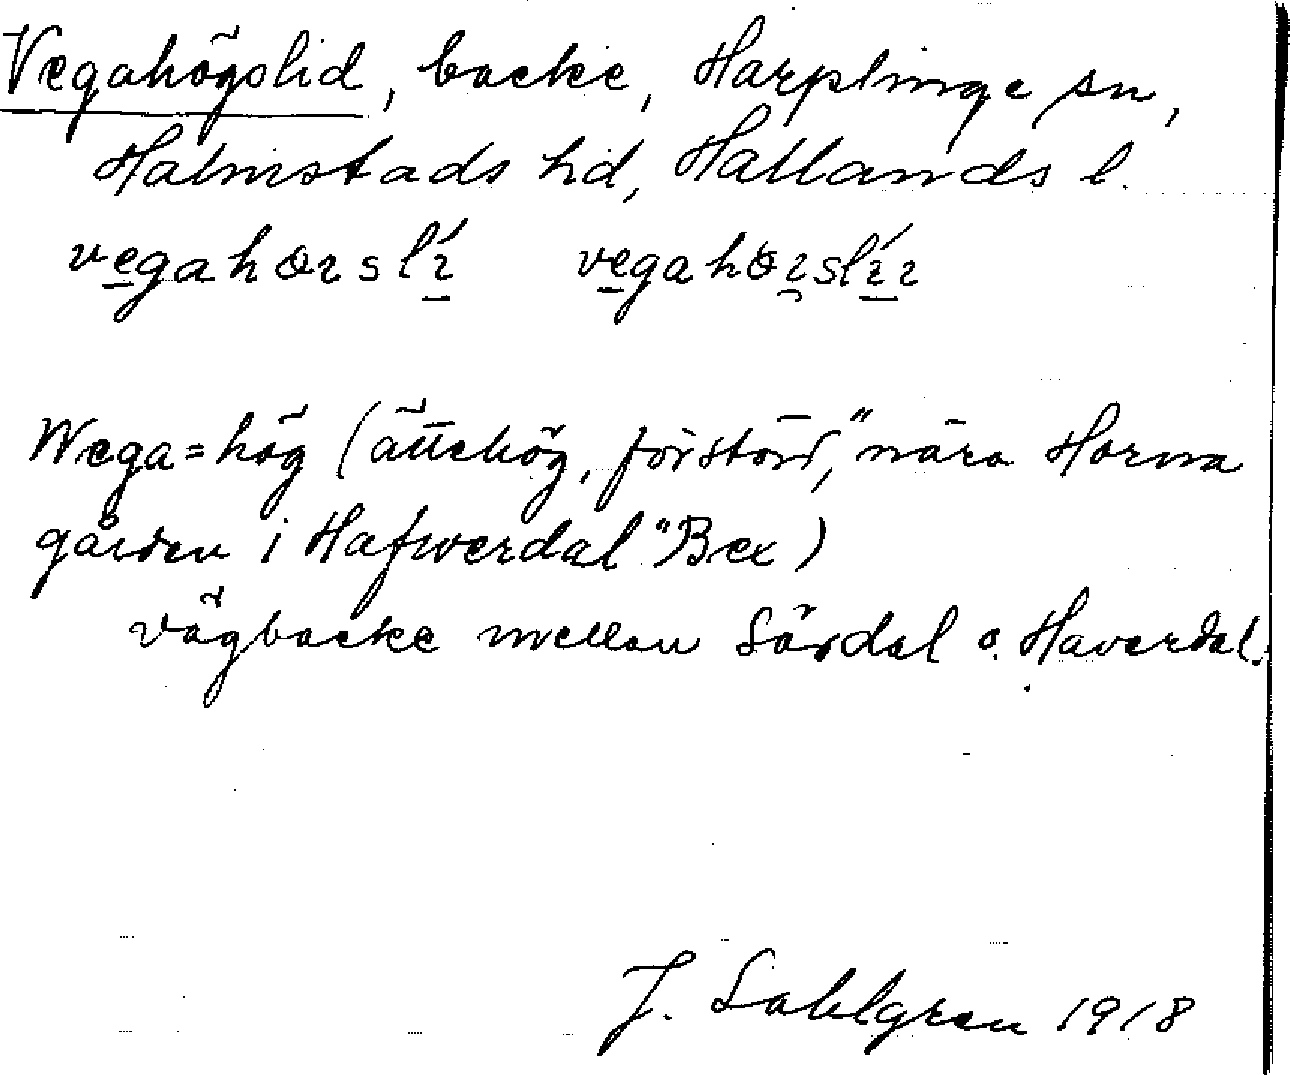 Vegahögslid, backe, Harplinge sn,
Halmstads hd, Hallands l.
Wega=hög (ättehög, förstörd, "nära Horna
gården i Hafwerdal" Bex)
vägbacke mellan Särdal o. Haverdal.
J. Sahlgren 1918